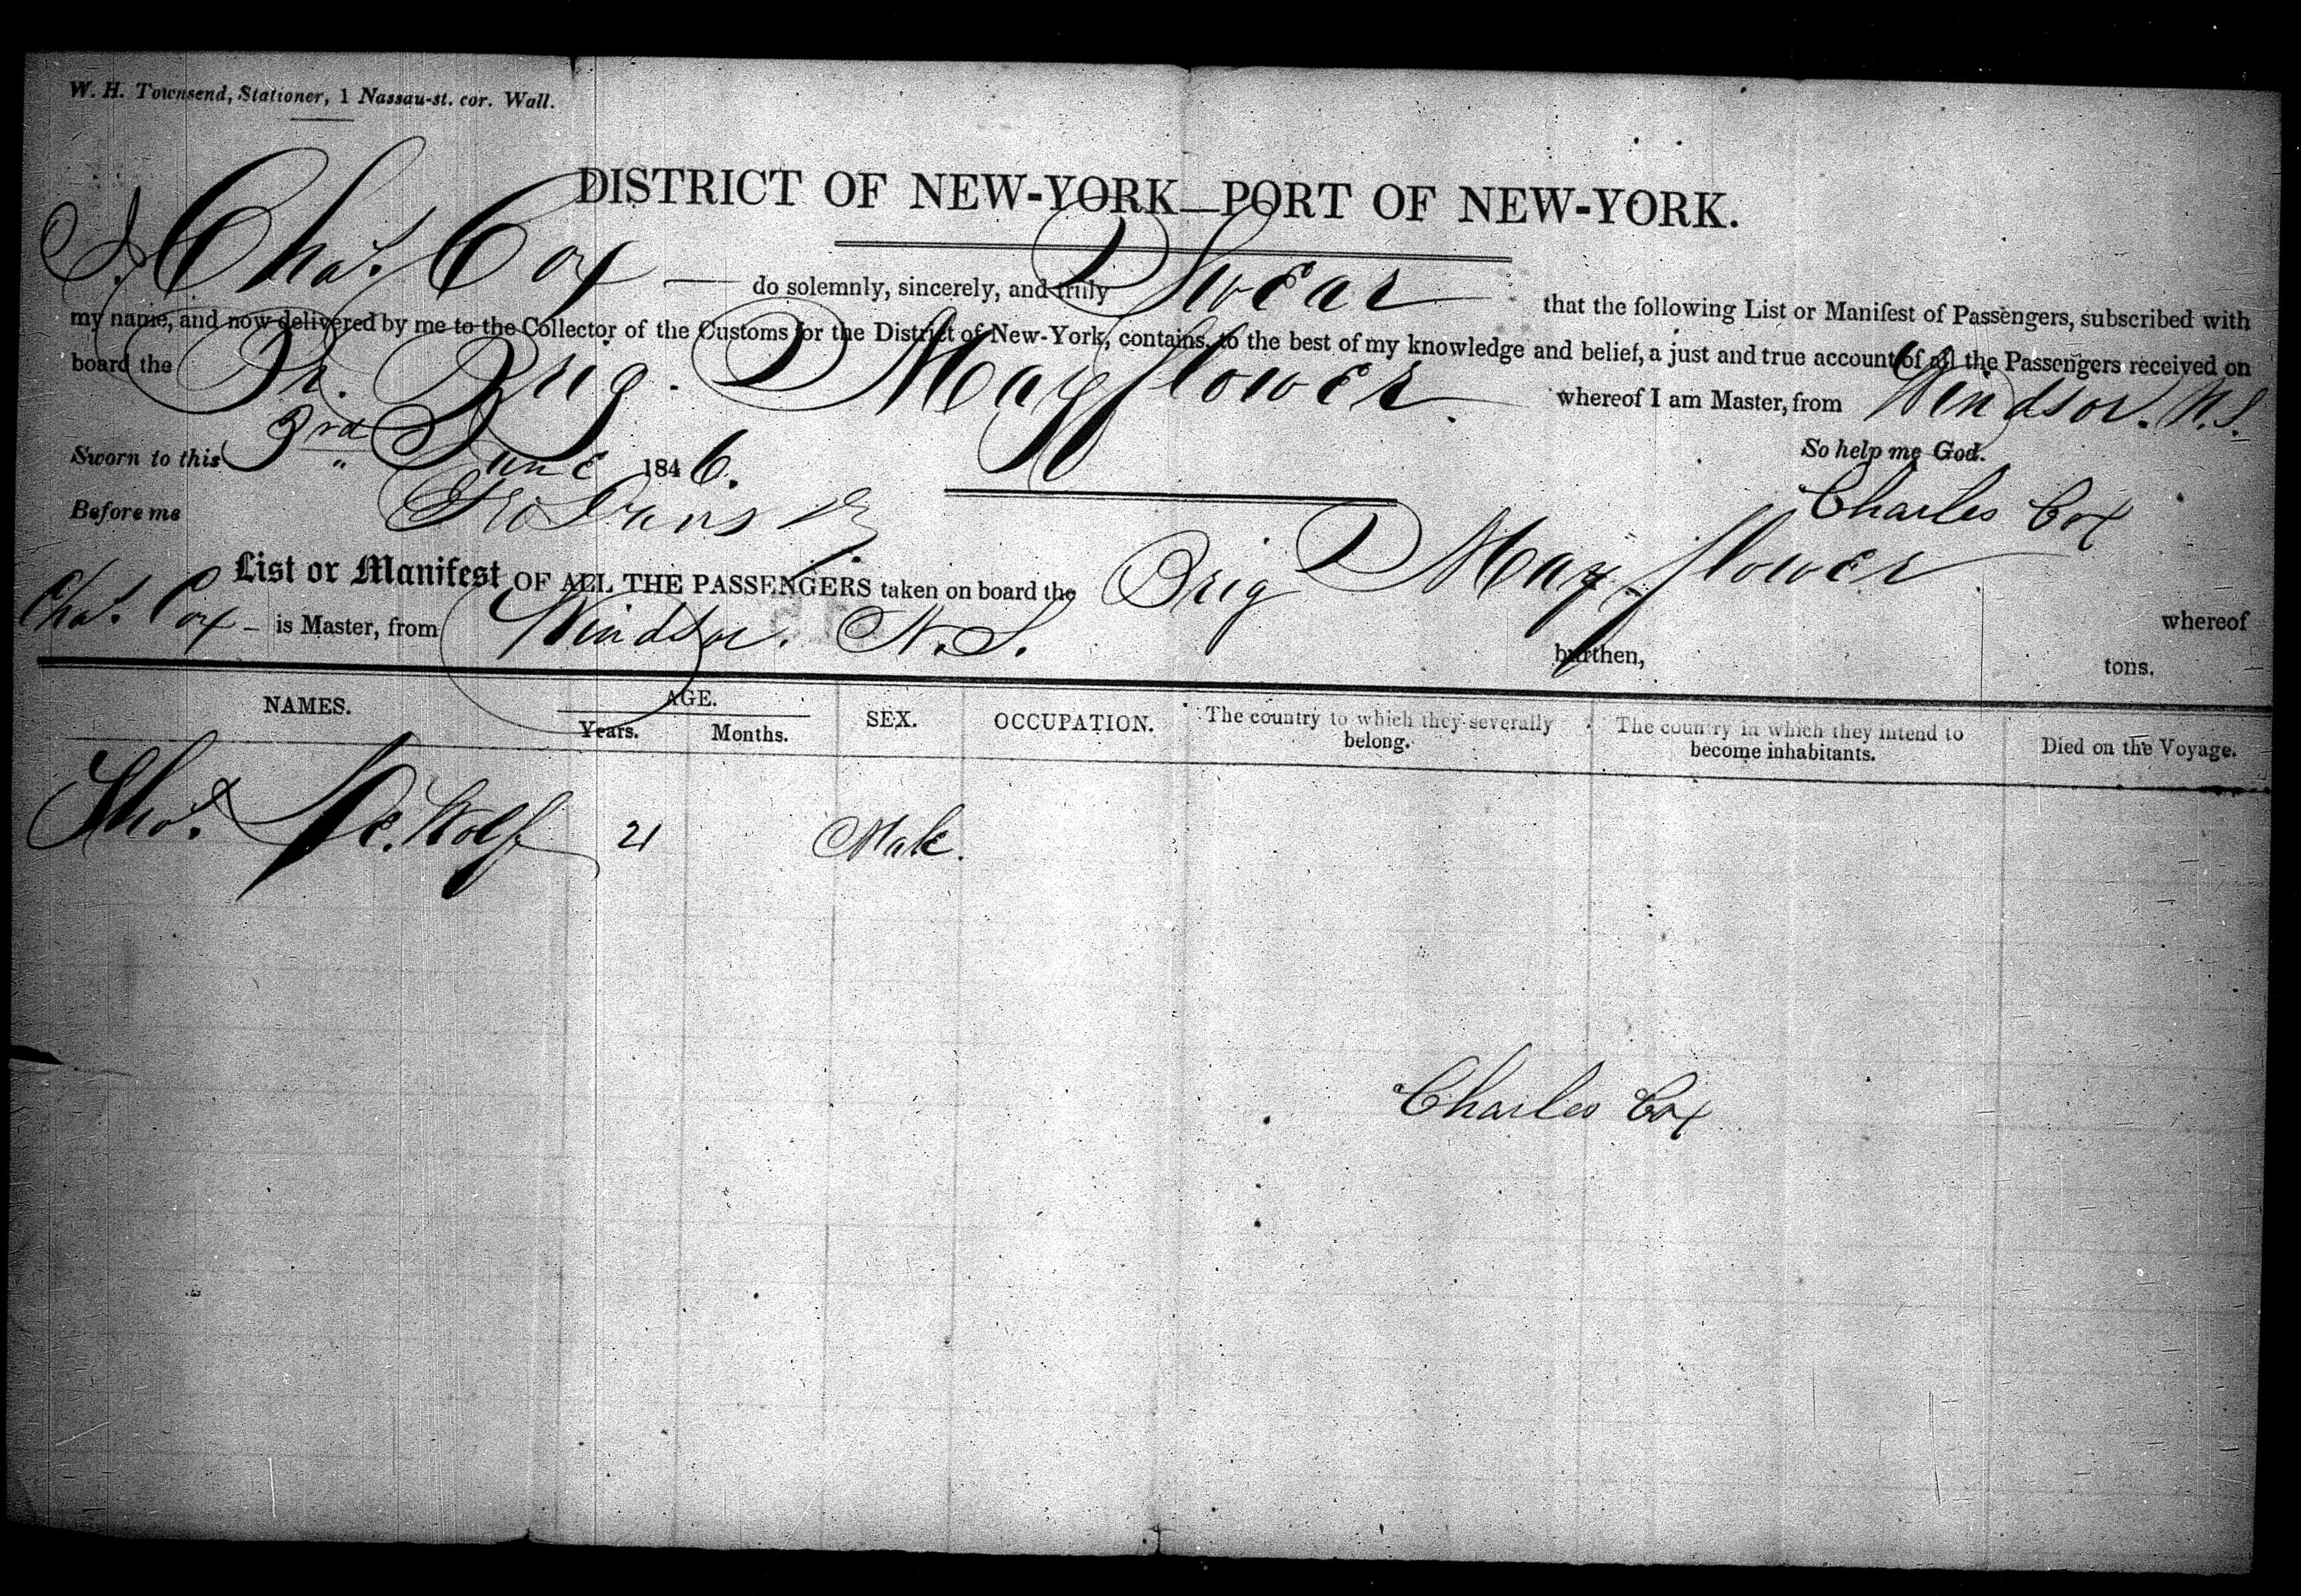 W. H. Townsend, Stationer, 1 Nassau-st. cor. Wall.
DISTRICT OF NEW-YORK—PORT OF NEW-YORK.
I, Chas. Cox — do solemnly, sincerely, and truly Swear that the following List or Manifest of Passengers, subscribed with
my name, and now delivered by me to the Collector of the Customs for the District of New-York, contains, to the best of my knowledge and belief, a just and true account of all the Passengers received on
board the Br. Brig. Mayflower. whereof I am Master, from Windsor. N.S.
Sworn to this 3rd June 1846. So help me God.
Before me Charles Cox
List or Manifest OF ALL THE PASSENGERS taken on board the Brig Mayflower whereof
Chas. Cox - is Master, from Windsor. N.S. burthen, tons.
NAMES. AGE. SEX. OCCUPATION. The country to which they severally belong. The country in which they intend to become inhabitants. Died on the Voyage.
Years. Months.
Thos. De.Wolf 21 Male.
Charles Cox